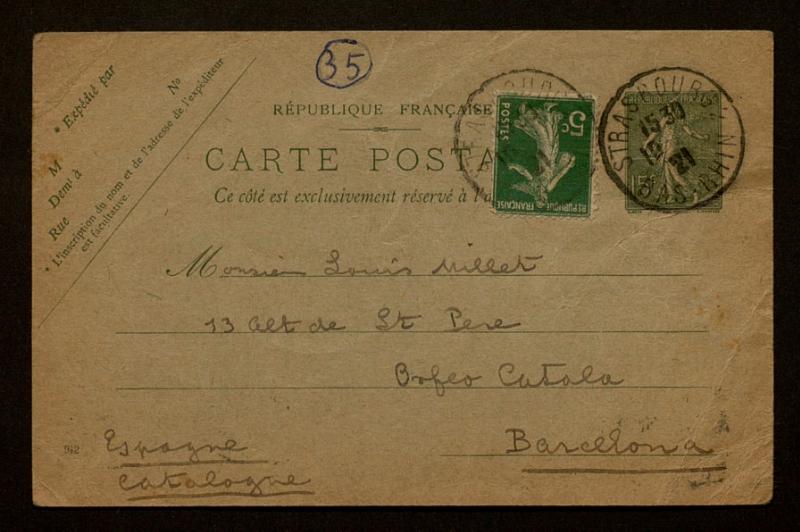 35
* Expédié par
No
M
Demt à
Rue
* L'inscription du nom et de l'adresse de l'expéditeur
est facultative.
RÉPUBLIQUE FRANÇAISE
CARTE POSTA
Ce côté est exclusivement réservé à l'a
5c
POSTES
RÉPUBLIQUE FRANÇAISE
STRASBOURG
BAS-RHIN
15 30
21
15c
Monsieur Louis Millet
13 Alt de St Pere
Orfeo Catala
Barcelona
Espagne
Catalogne
942